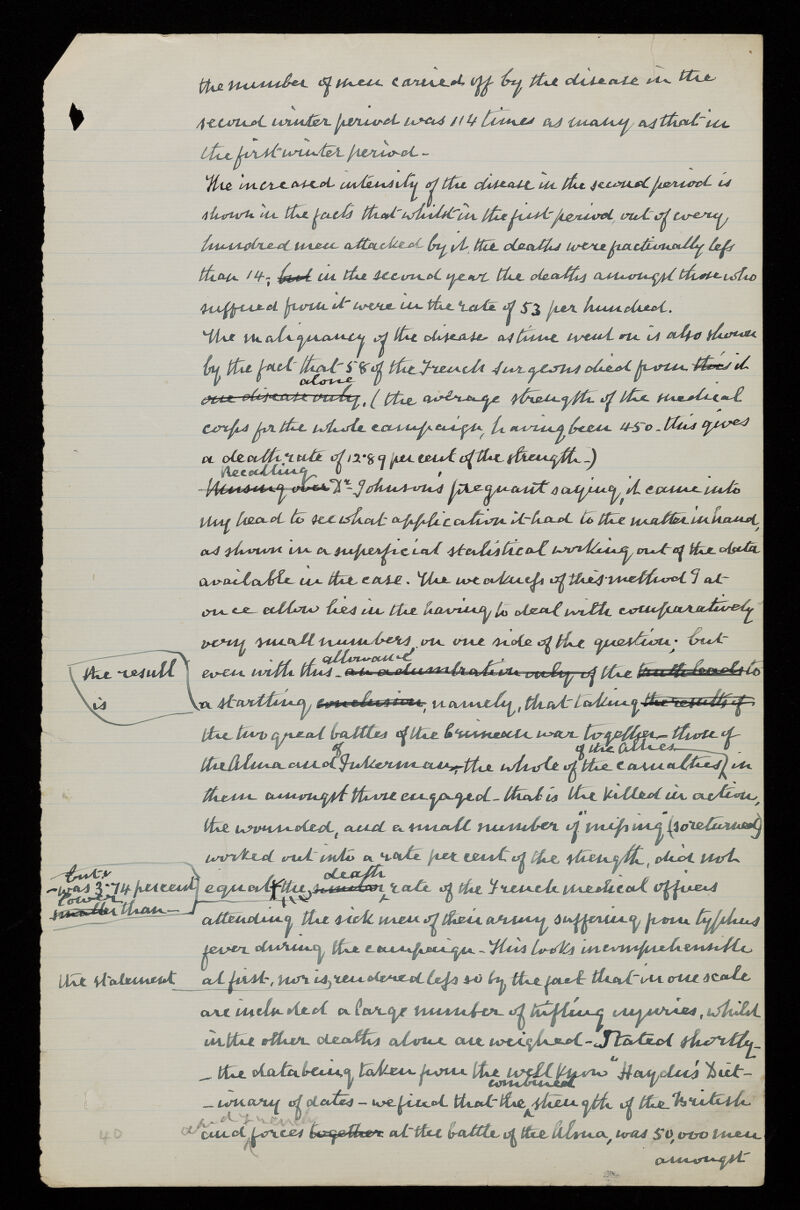 the number of men carried off by the disease in the
second winter period was 114 times as many as that in
the first winter period -
The increased intensity of the disease in the second period is
shown in the facts that whilst in the first period, out of every
hundred men attacked by it the deaths were fractionally less
than 14; but in the second year the deaths amongst those who
suffered from it were in the rate of 53 per hundred.
The malignancy of the disease as time went on is also shown
by the fact that 58 of the French surgeons died from this it
alone
one disease only. (the average strength of the medical
corps for the whole campaign, having been 450 - this gives
a death rate of 12.89 per cent of the strength -)
Recalling
Musing over Dr. Johnson's pregnant saying, it came into
my head to see what application it had to the matter in hand,
as shown in a superficial statistical working out of the data
available in the case. The weakness of this method I at
once allow lies in the having to deal with comparatively
very small numbers, on one side of the question; but
allowance
even with this - an adumbration only of the truth leads to
the result
is
a startling conclusion, namely, that taking the results of
the two great battles of the Crimean war together - those of
of of the Allies
the Alma and Inkerman, the whole of the casualties in
them amongst those engaged - that is the killed in action,
the wounded, and a small number of "missing" (so returned)
worked out into a rate per cent of the strength, did not
but
- was 3.74 per cent
lower
smaller than -
death
equal the number rate of the French medical officers
attending the sick men of their army suffering from typhus
fever during the campaign - This looks incomprehensible
the statement
at first, nor is, rendered less so by the fact that in one scale
are included a large number of trifling injuries, whilst
in the other deaths alone are weighed - Stated shortly -
- the data being taken from the well know "Haydn's Dict-
combined
- ionary of dates - we find that the strength of the British
and French
and forces together at the battle of the Alma, was 50,000 men
40
amongst